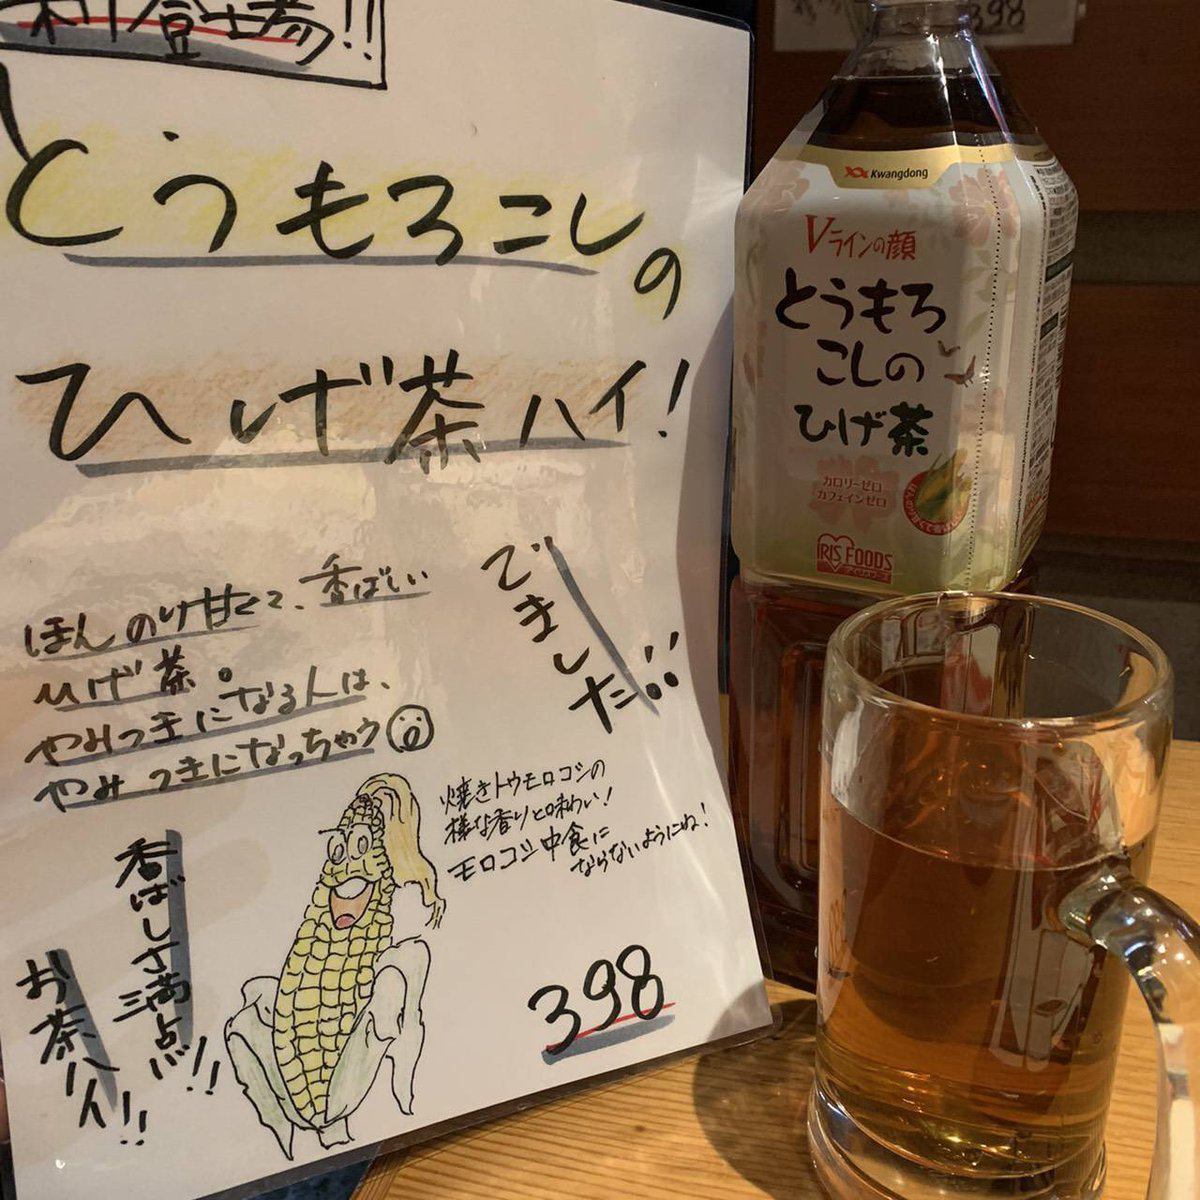 新登場!!
とうもろこしの
ひげ茶ハイ!
でました!!
ほんのり甘くて、香ばしい
ひげ茶。
やみつきになる人は、
やみつきになっちゃう
焼きトウモロコシの
様な香りと味わい!
モロコシ中食に
ならないようにね!
香ばしさ満点!!
お茶ハイ!!
398
398
Kwangdong
Vラインの顔
とうもろ
こしの
ひげ茶
カロリーゼロ
カフェインゼロ
IRIS FOODS